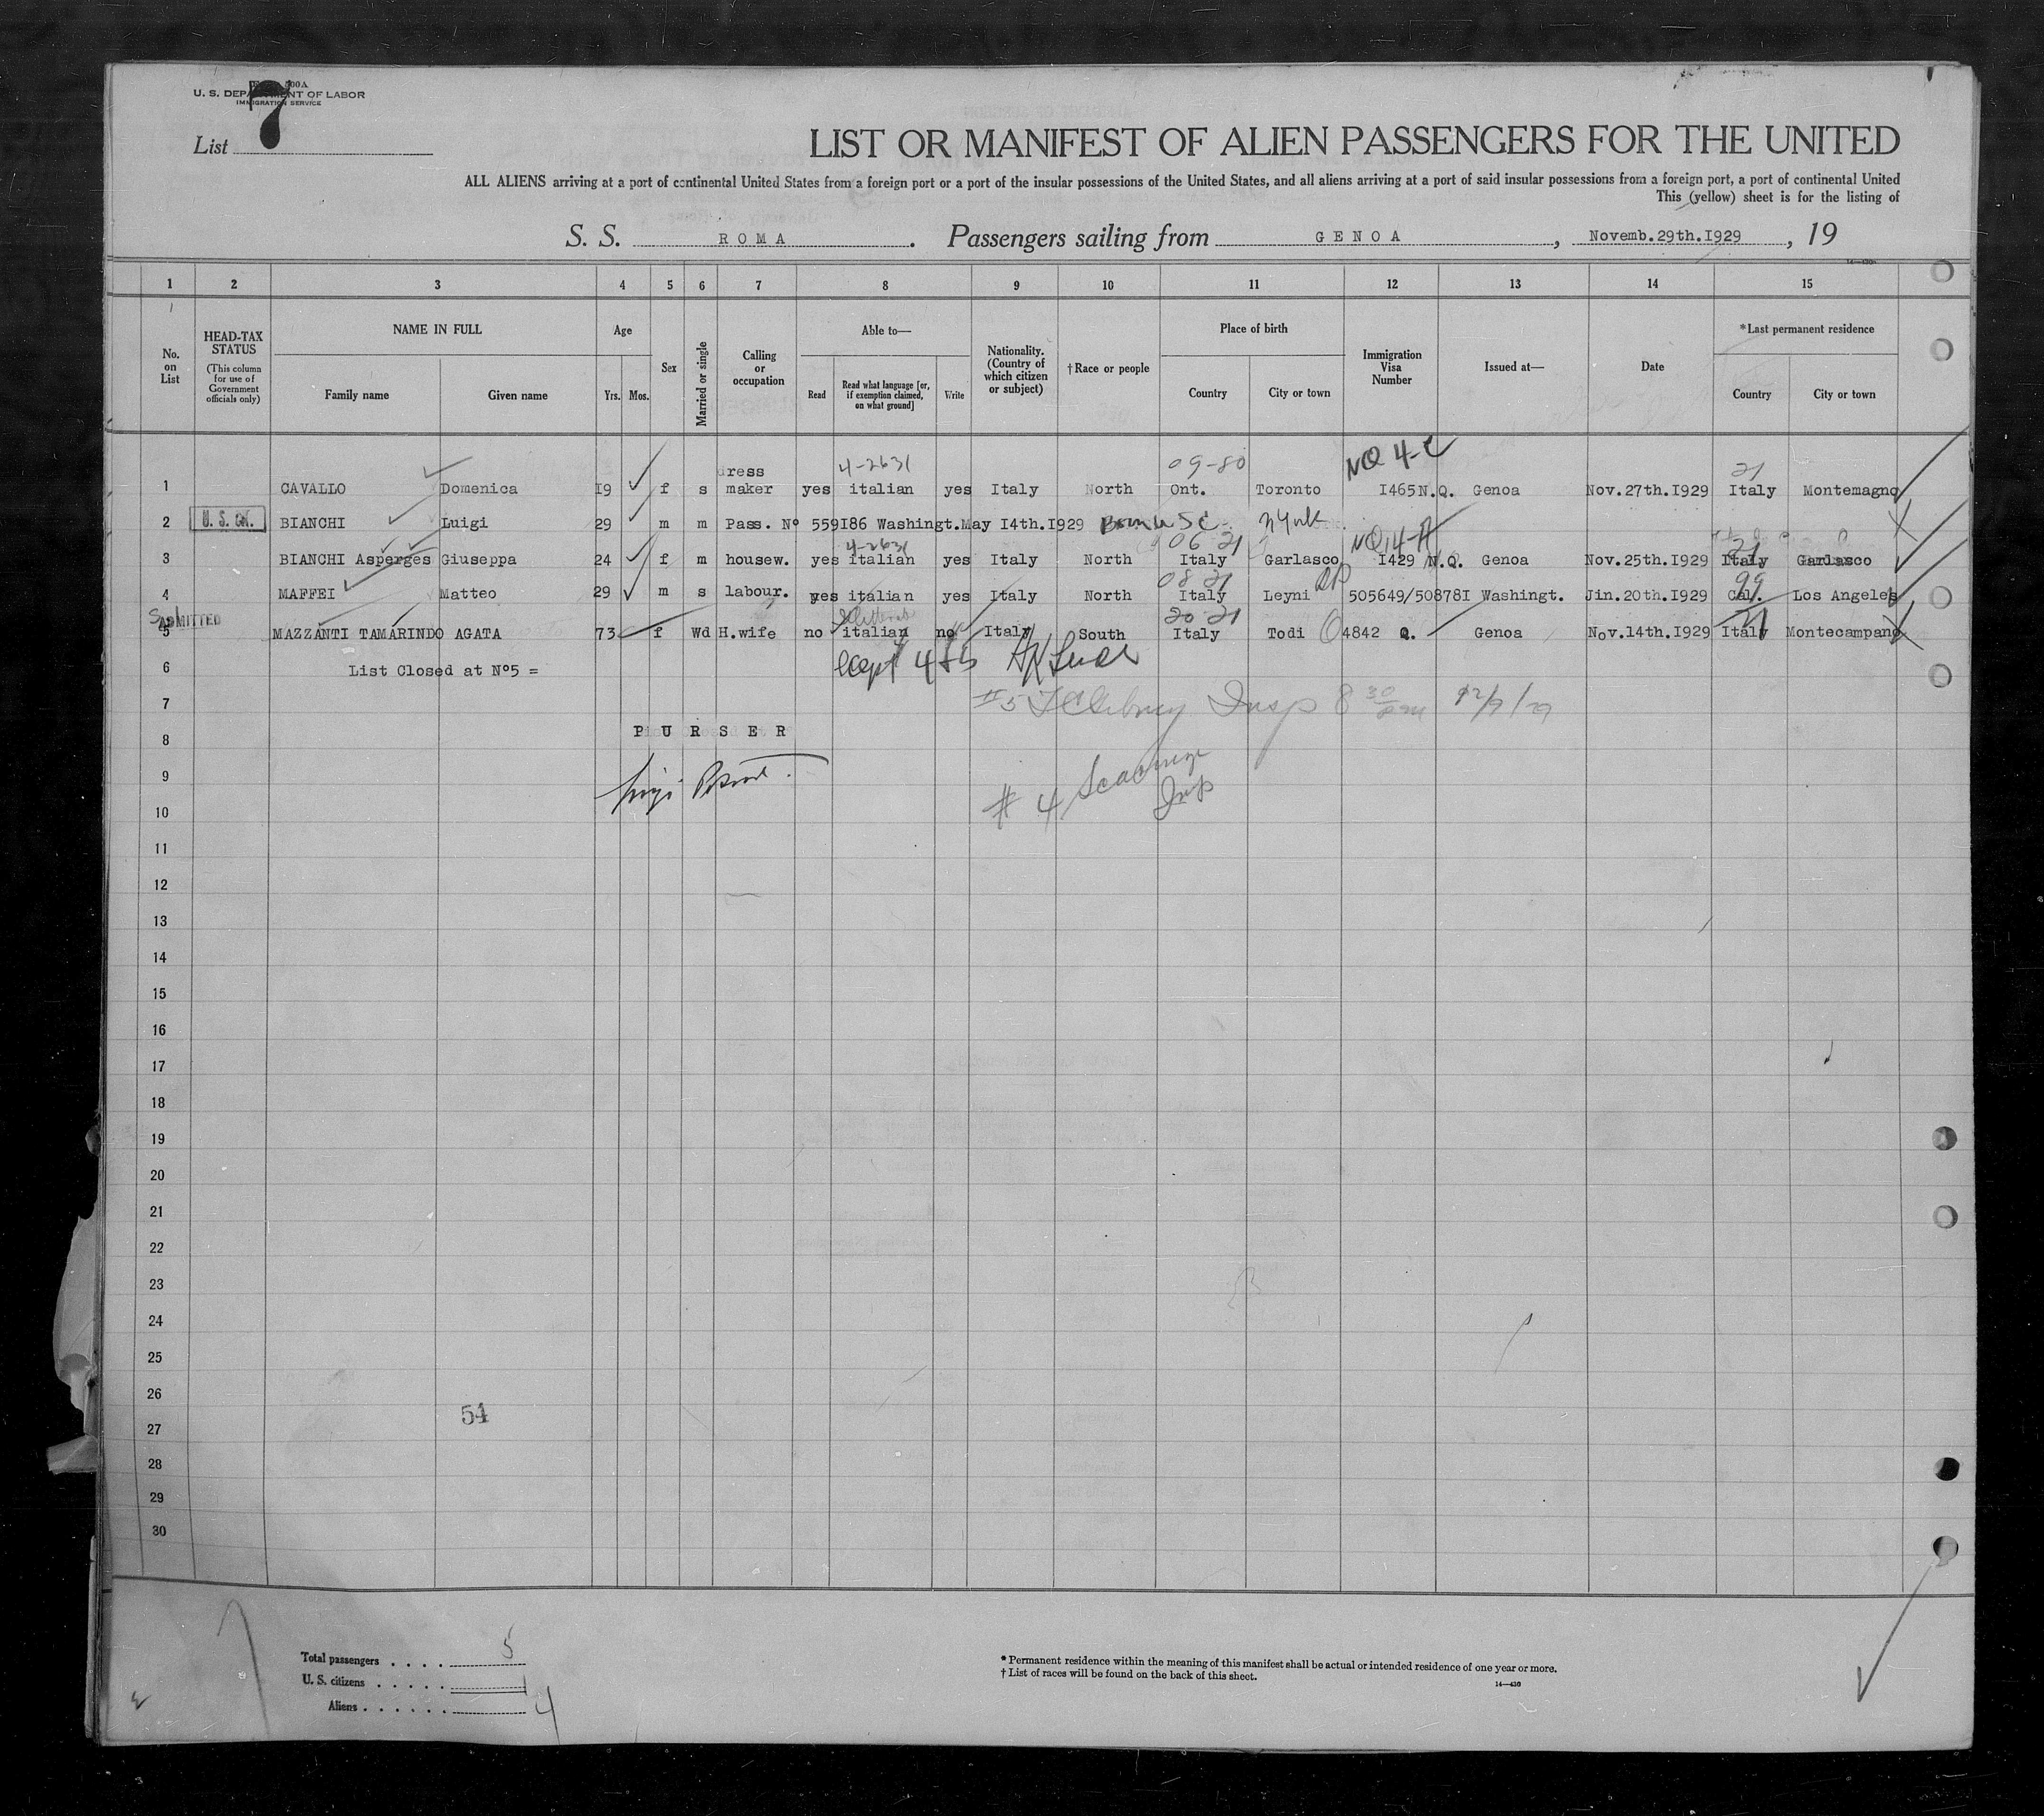 U. S. DEPARTMENT OF LABOR
IMMIGRATION SERVICE
List 7
LIST OR MANIFEST OF ALIEN PASSENGERS FOR THE UNITED
ALL ALIENS arriving at a port of continental United States from a foreign port or a port of the insular possessions of the United States, and all aliens arriving at a port of said insular possessions from a foreign port, a port of continental United
This (yellow) sheet is for the listing of
S. S. ROMA. Passengers sailing from GENOA, Novemb.29th.I929, 19
14—430
1 2 3 4 5 6 7 8 9 10 11 12 13 14 15
No. on List
HEAD-TAX STATUS
(This column for use of Government officials only)
NAME IN FULL
Family name Given name
Age
Yrs. Mos.
Sex
Married or single
Calling or occupation
Able to—
Read Read what language [or, if exemption claimed, on what ground] Write
Nationality. (Country of which citizen or subject)
† Race or people
Place of birth
Country City or town
Immigration Visa Number
Issued at—
Date
*Last permanent residence
Country City or town
NQ 4-C
dress 4-2631 09-80 21
1 CAVALLO Domenica I9 f s maker yes italian yes Italy North Ont. Toronto I465N.Q. Genoa Nov.27th.I929 Italy Montemagno
2 U. S. CIT. BIANCHI Luigi 29 m m Pass. Nº 559I86 Washingt.May I4th.I929
4-2631 06 21 NQ 4-A 21
3 BIANCHI Asperges Giuseppa 24 f m housew. yes italian yes Italy North Italy Garlasco I429 N.Q. Genoa Nov.25th.I929 Italy Garlasco
08 21 RP 99
4 MAFFEI Matteo 29 m s labour. yes italian yes Italy North Italy Leyni 505649/50878I Washingt. Jin.20th.I929 Cal. Los Angeles
ADMITTED 20 21 21
5 MAZZANTI TAMARINDO AGATA 73 f Wd H.wife no italian no Italy South Italy Todi 4842 Q. Genoa Nov.14th.I929 Italy Montecampano
6 List Closed at Nº5 =
except 4 & 5
7 #5 Insp 8 30 pm 12/9/29
8 PURSER
9
# 4 Insp
10
11
12
13
14
15
16
17
18
19
20
21
22
23
24
25
26
54
27
28
29
30
Total passengers . . . . 5
U. S. citizens . . . . . 1
Aliens . . . . . . 4
* Permanent residence within the meaning of this manifest shall be actual or intended residence of one year or more.
† List of races will be found on the back of this sheet.
14—430